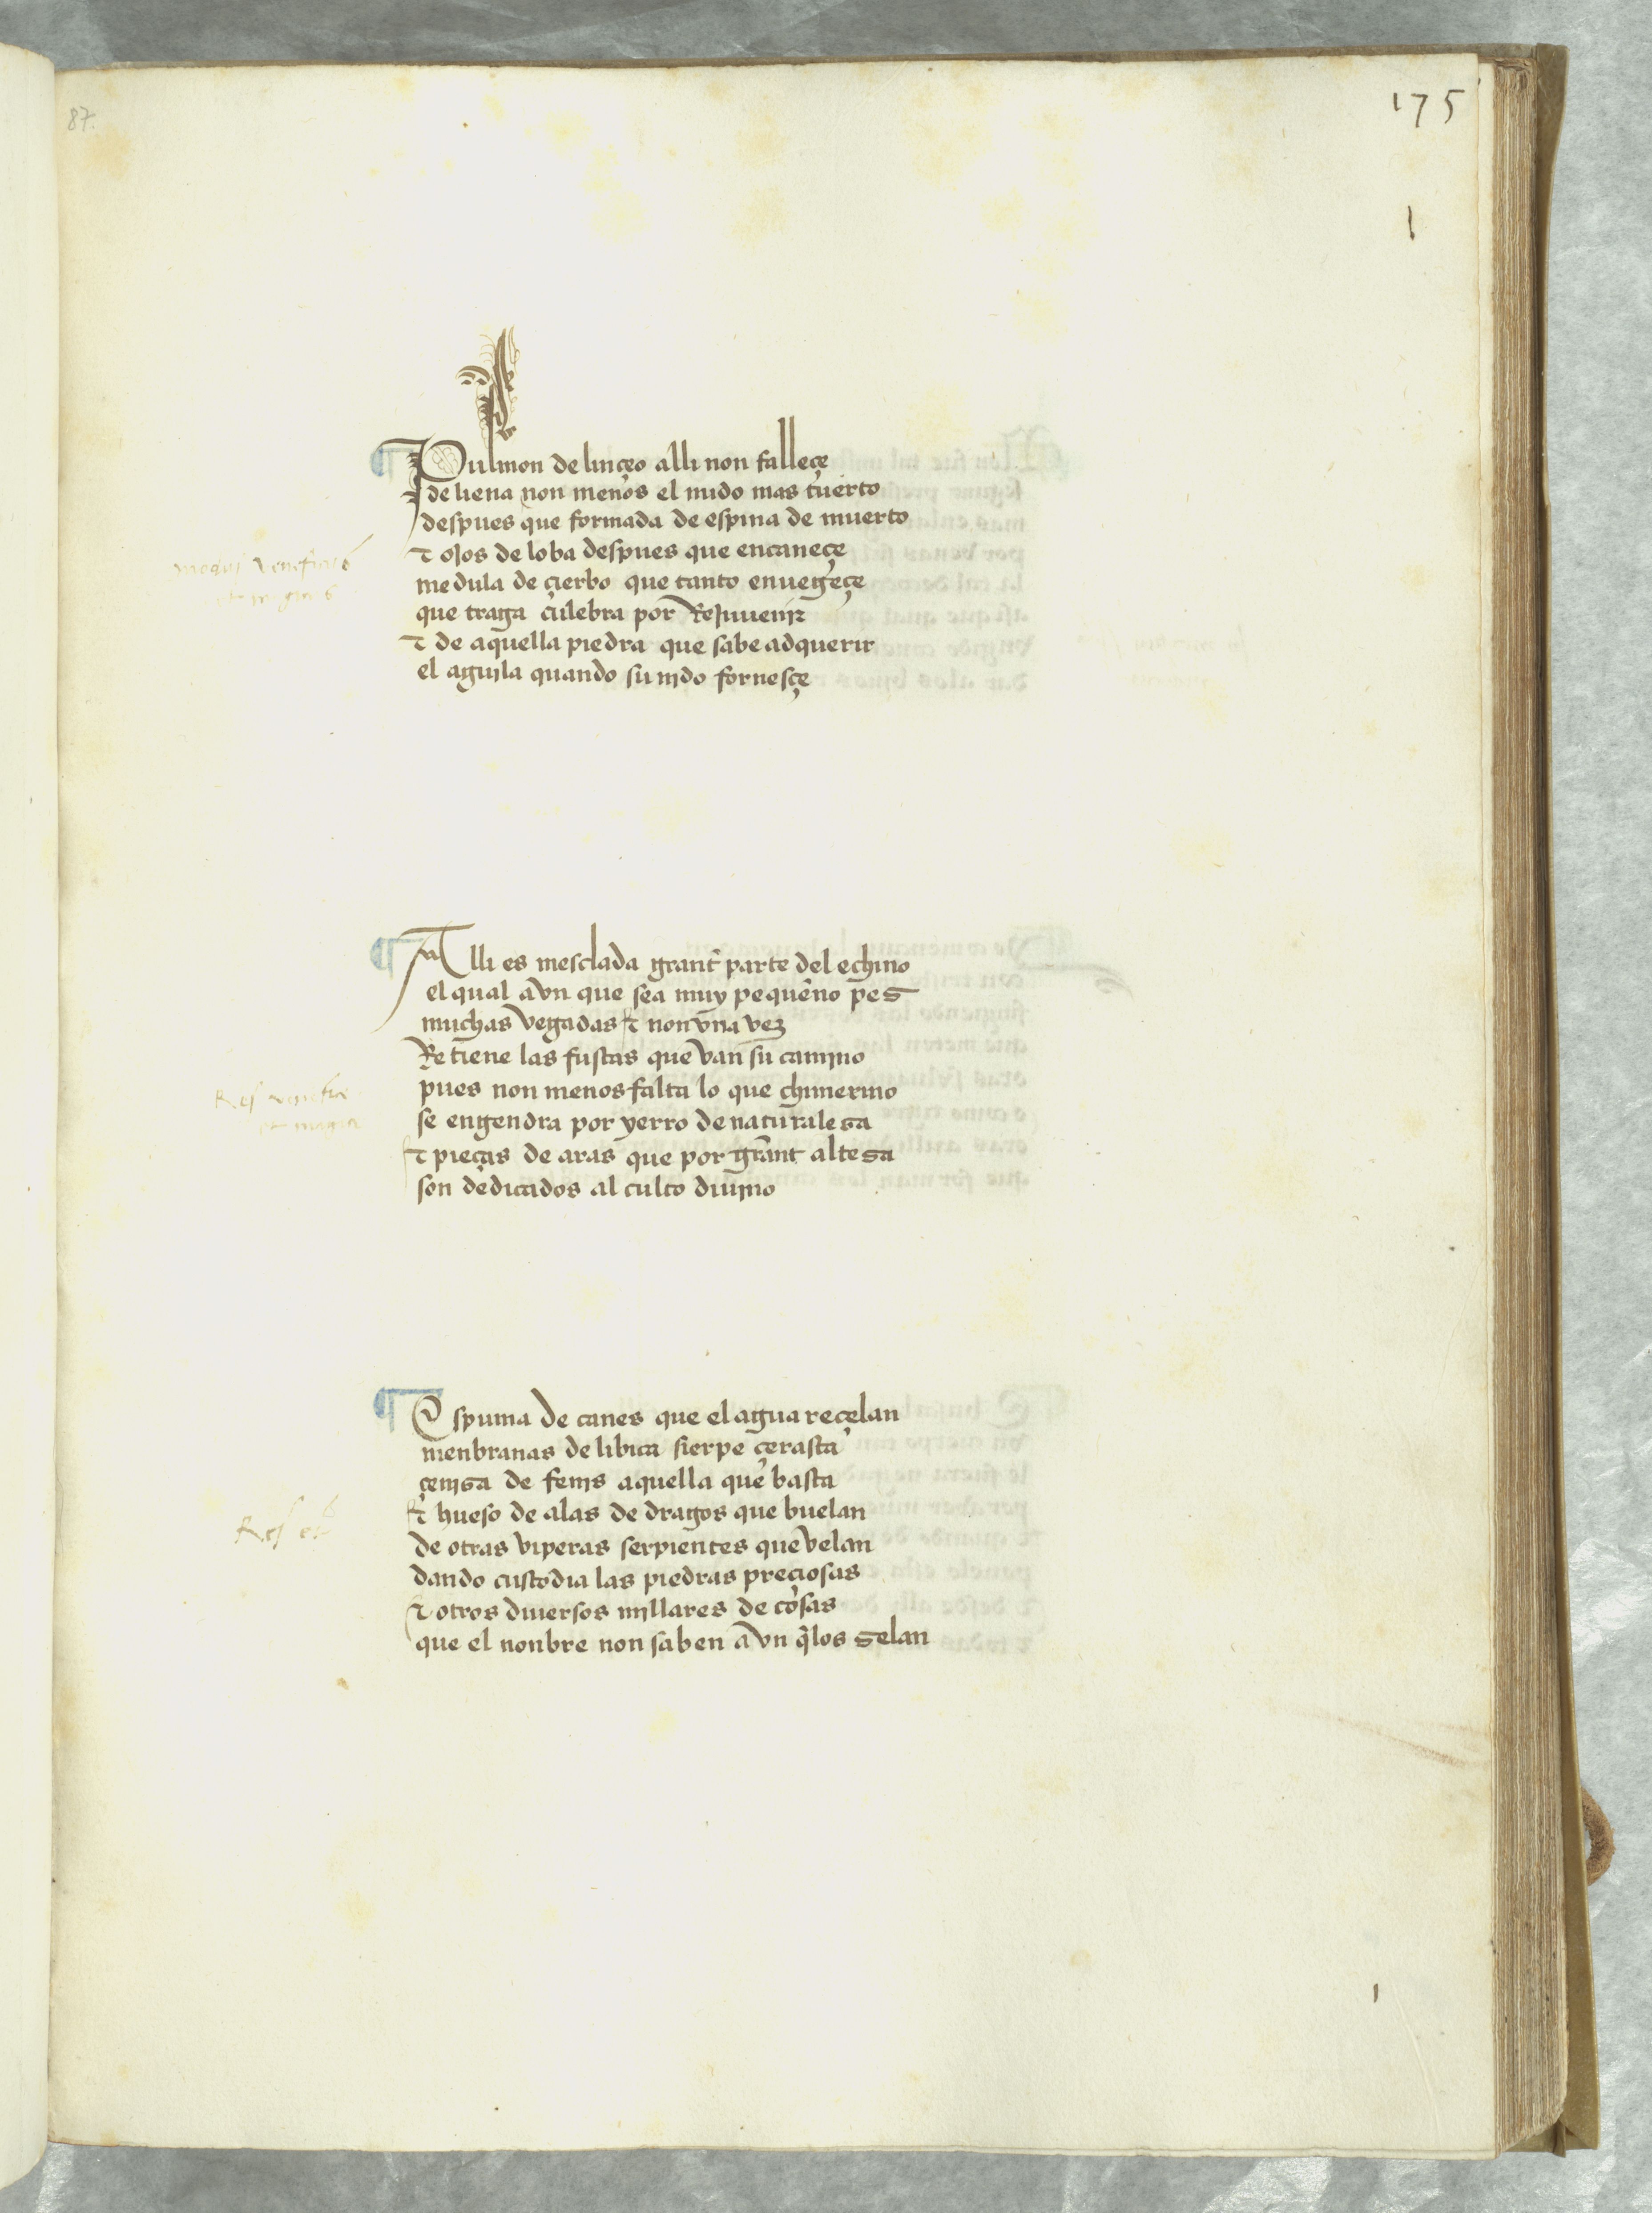 87.
175
1
¶ Pulmon de linçeo alli non falleçe
de hiena non menos el nudo mas tuerto
despues que formada de espina de muerto
⁊ ojos de loba despues que encaneçe
medula de çierbo que tanto enuegeçe
que traga culebra por Rejuuenir
⁊ de aquella piedra que sabe adquerir
el aguila quando su nido fornesçe
¶ Alli es mesclada grant parte del echino
el qual avn que sea muy pequeno pes
muchas vegadas ⁊ non vna vez
Retiene las fustas que van su camino
pues non menos falta lo que chimerino
se engendra por yerro de naturalesa
⁊ pieças de aras que por grant altesa
son dedicados al culto diuino
Res
et magica
¶ Espuma de canes que el agua reçelan
menbranas de libica sierpe çerasta
çenisa de fenis aquella que basta
⁊ hueso de alas de dragos que buelan
de otras viperas serpientes que velan
dando custodia las piedras preçiosas
⁊ otros diuersos millares de cosas
que el nonbre non saben avn q̃ los selan
Res
1